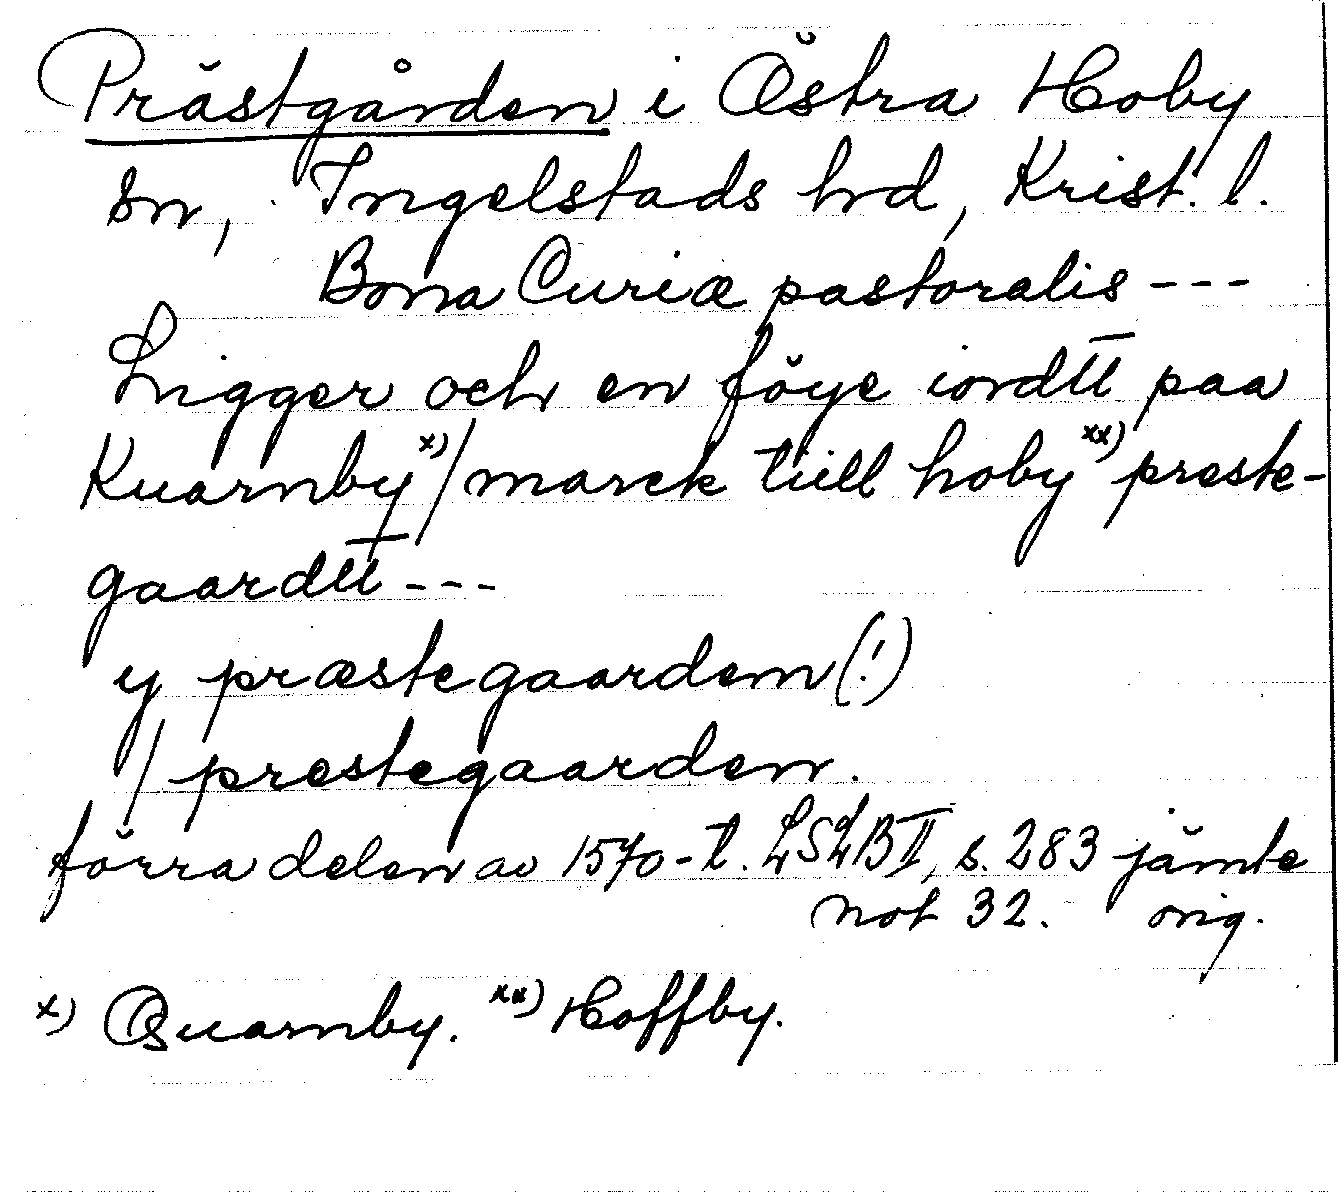 Prästgården i Östra Hoby
sn, Ingelstads hrd, Krist. l.
Bona Curiæ pastoralis ---
Ligger och en föye iordtt paa
Kuarnby x) / marck tiill hoby xx) preste-
gaardtt ---
y præstegaardem (!)
/ prestegaarden.
förra delen av 1570-t. LSLB II, s. 283 jämte
not 32. orig.
x) Quarnby. xx) Hoffby.